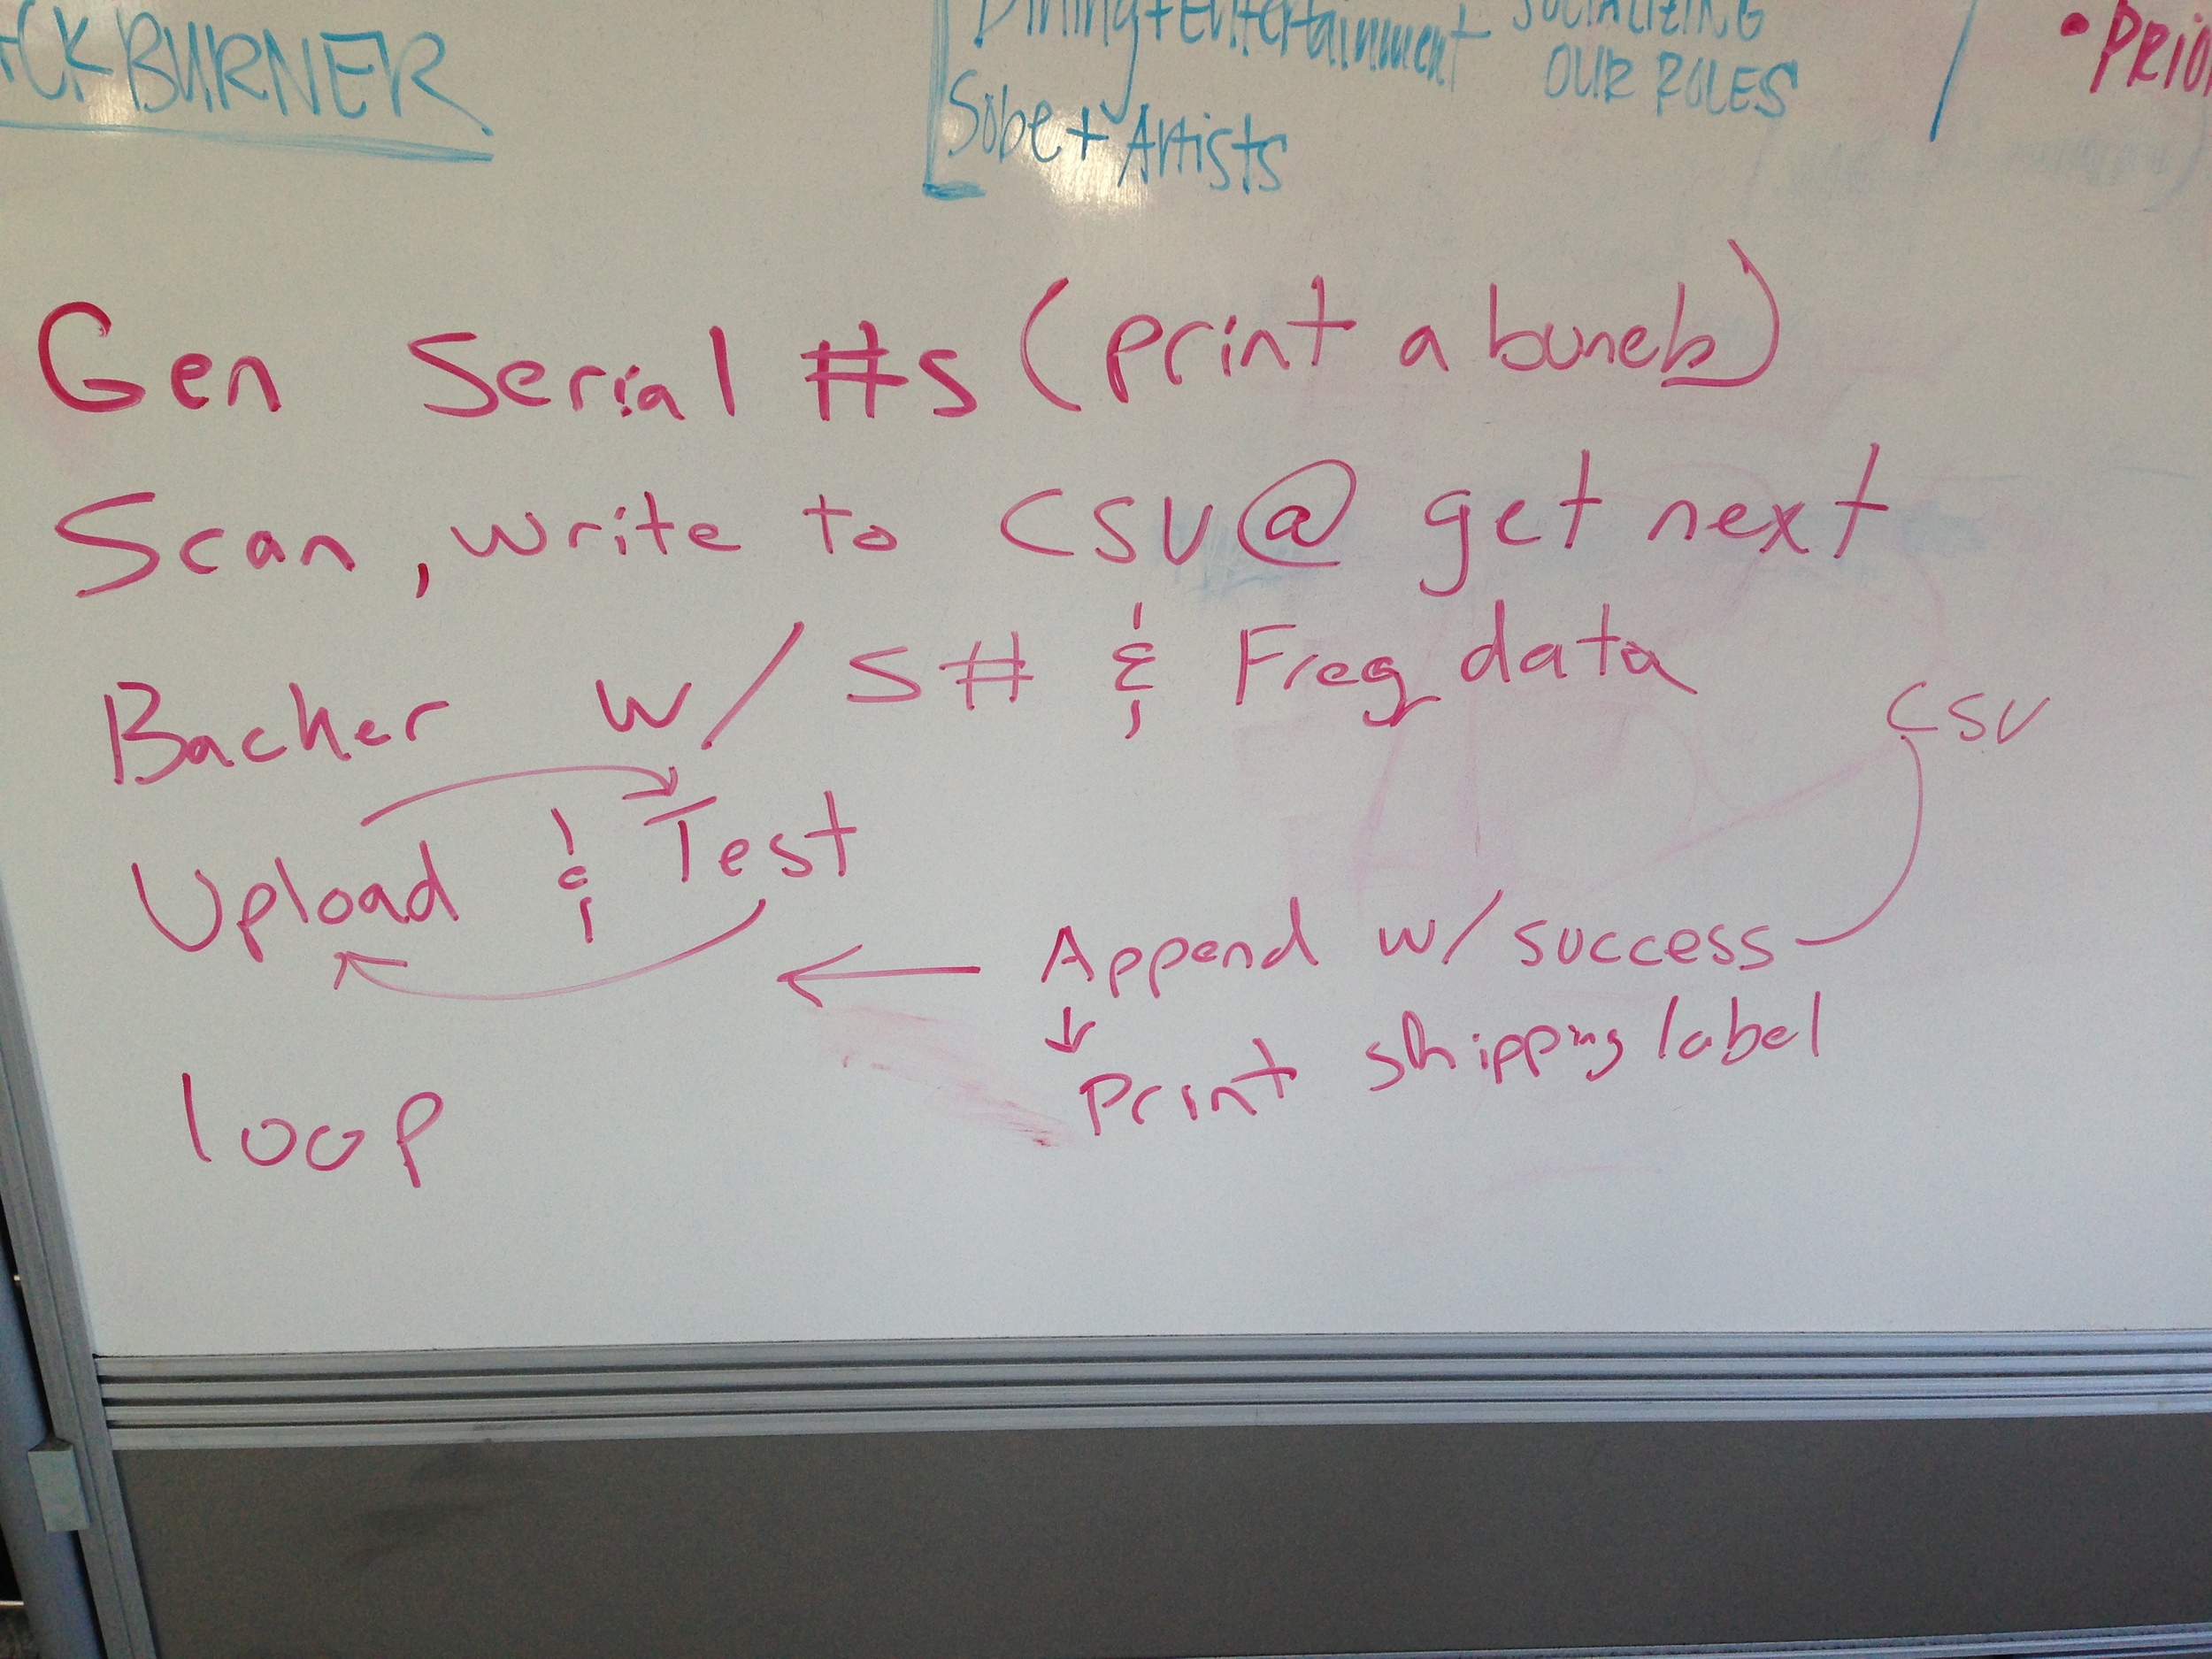 BURNER
Dining + Entertainment
SOCIALIZING
OUR ROLES
Sobe + Artists
• PRIOR
Gen Serial #s (print a bunch)
Scan, write to CSV @ get next
Backer w/ S# & Freq data
CSV
Upload & Test
Append w/ success
Print shipping label
loop